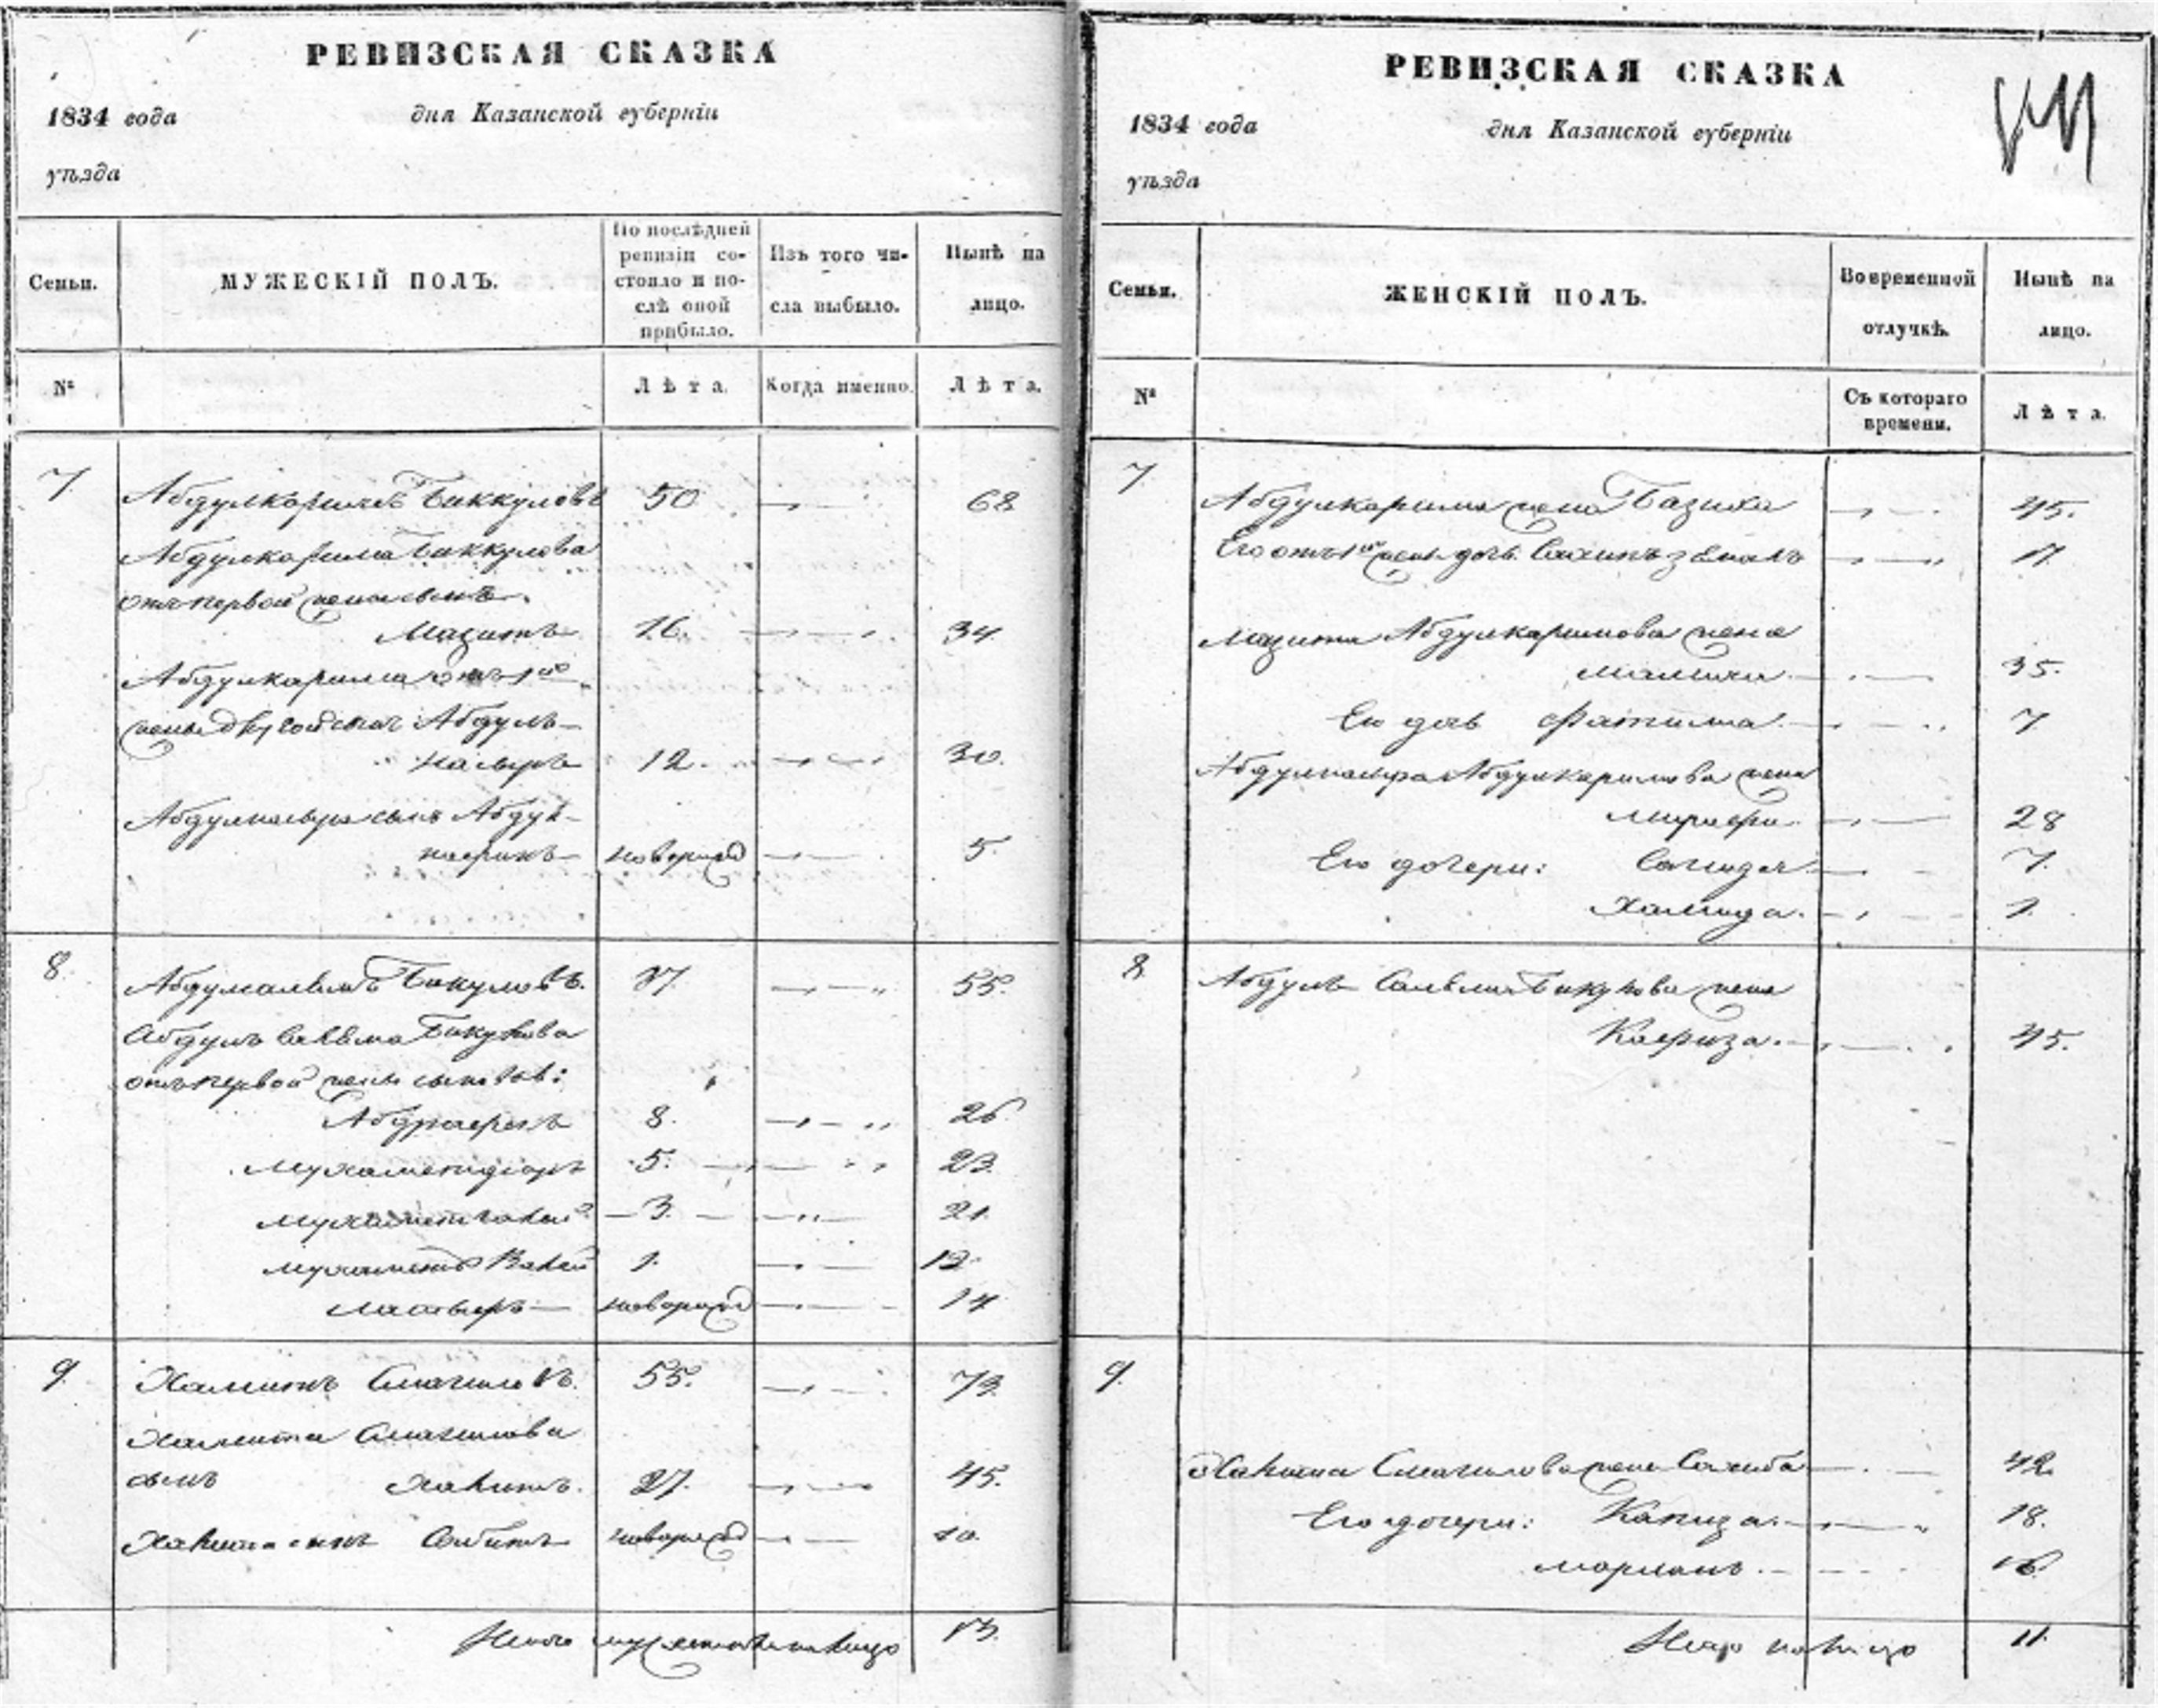 РЕВИЗСКАЯ СКАЗКА
1834 года дня Казанской губерніи
уѣзда
Семьи.
МУЖЕСКІЙ ПОЛЪ.
По послѣдней
ревизіи со-
стояло и по-
слѣ оной
прибыло.
Изъ того чи-
сла выбыло.
Нынѣ на
лицо.
№
Лѣта.
Когда именно.
Лѣта.
7. Абдулкаримъ Биккуловъ 50 68
Абдулкарима Биккулова
отъ первой жены сынъ
Мазитъ 16. 34.
Абдулкарима отъ 1й
жены другой сынъ Абдулъ-
насыръ 12. 30.
Абдулнасыра сынъ
новорожд 5.
8. Бикуловъ. 37. 55.
Абдулъ Салѣма Бикулова
отъ первой жены сыновья:
8. 26.
5. 23.
3. 21.
Мухаметъ Валей 1. 19.
новорожд 14
9. Хамитъ Смагиловъ. 55. 73.
Хамита Смагилова
сынъ Хакитъ. 27. 45.
Хакита сынъ Сабитъ новорожд 10.
Итого мужеска на лицо 13.
РЕВИЗСКАЯ СКАЗКА
1834 года дня Казанской губерніи
уѣзда
Семьи.
ЖЕНСКІЙ ПОЛЪ.
Во временной
отлучкѣ.
Нынѣ на
лицо.
№
Съ котораго
времени.
Лѣта.
7 Абдулкарима жена Базиха 45.
Его отъ 1й жены дочь 17
Мазита Абдулкаримова жена
35.
Его дочь Фатима 7
Абдулнасыра Абдулкаримова жена
28
Его дочери: Сагида 7.
Халида. 1.
8. Абдулъ Салѣма Бикулова жена
Кафиза. 45.
9. Хакита Смагилова жена Сахиба 42.
Его дочери: Капиза. 18.
Маріамъ. 16.
на лицо 11.